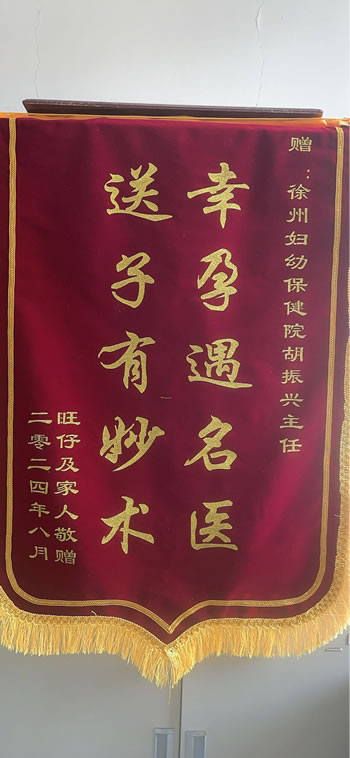 赠：徐州妇幼保健院胡振兴主任
幸孕遇名医
送子有妙术
旺仔及家人敬赠
二零二四年八月